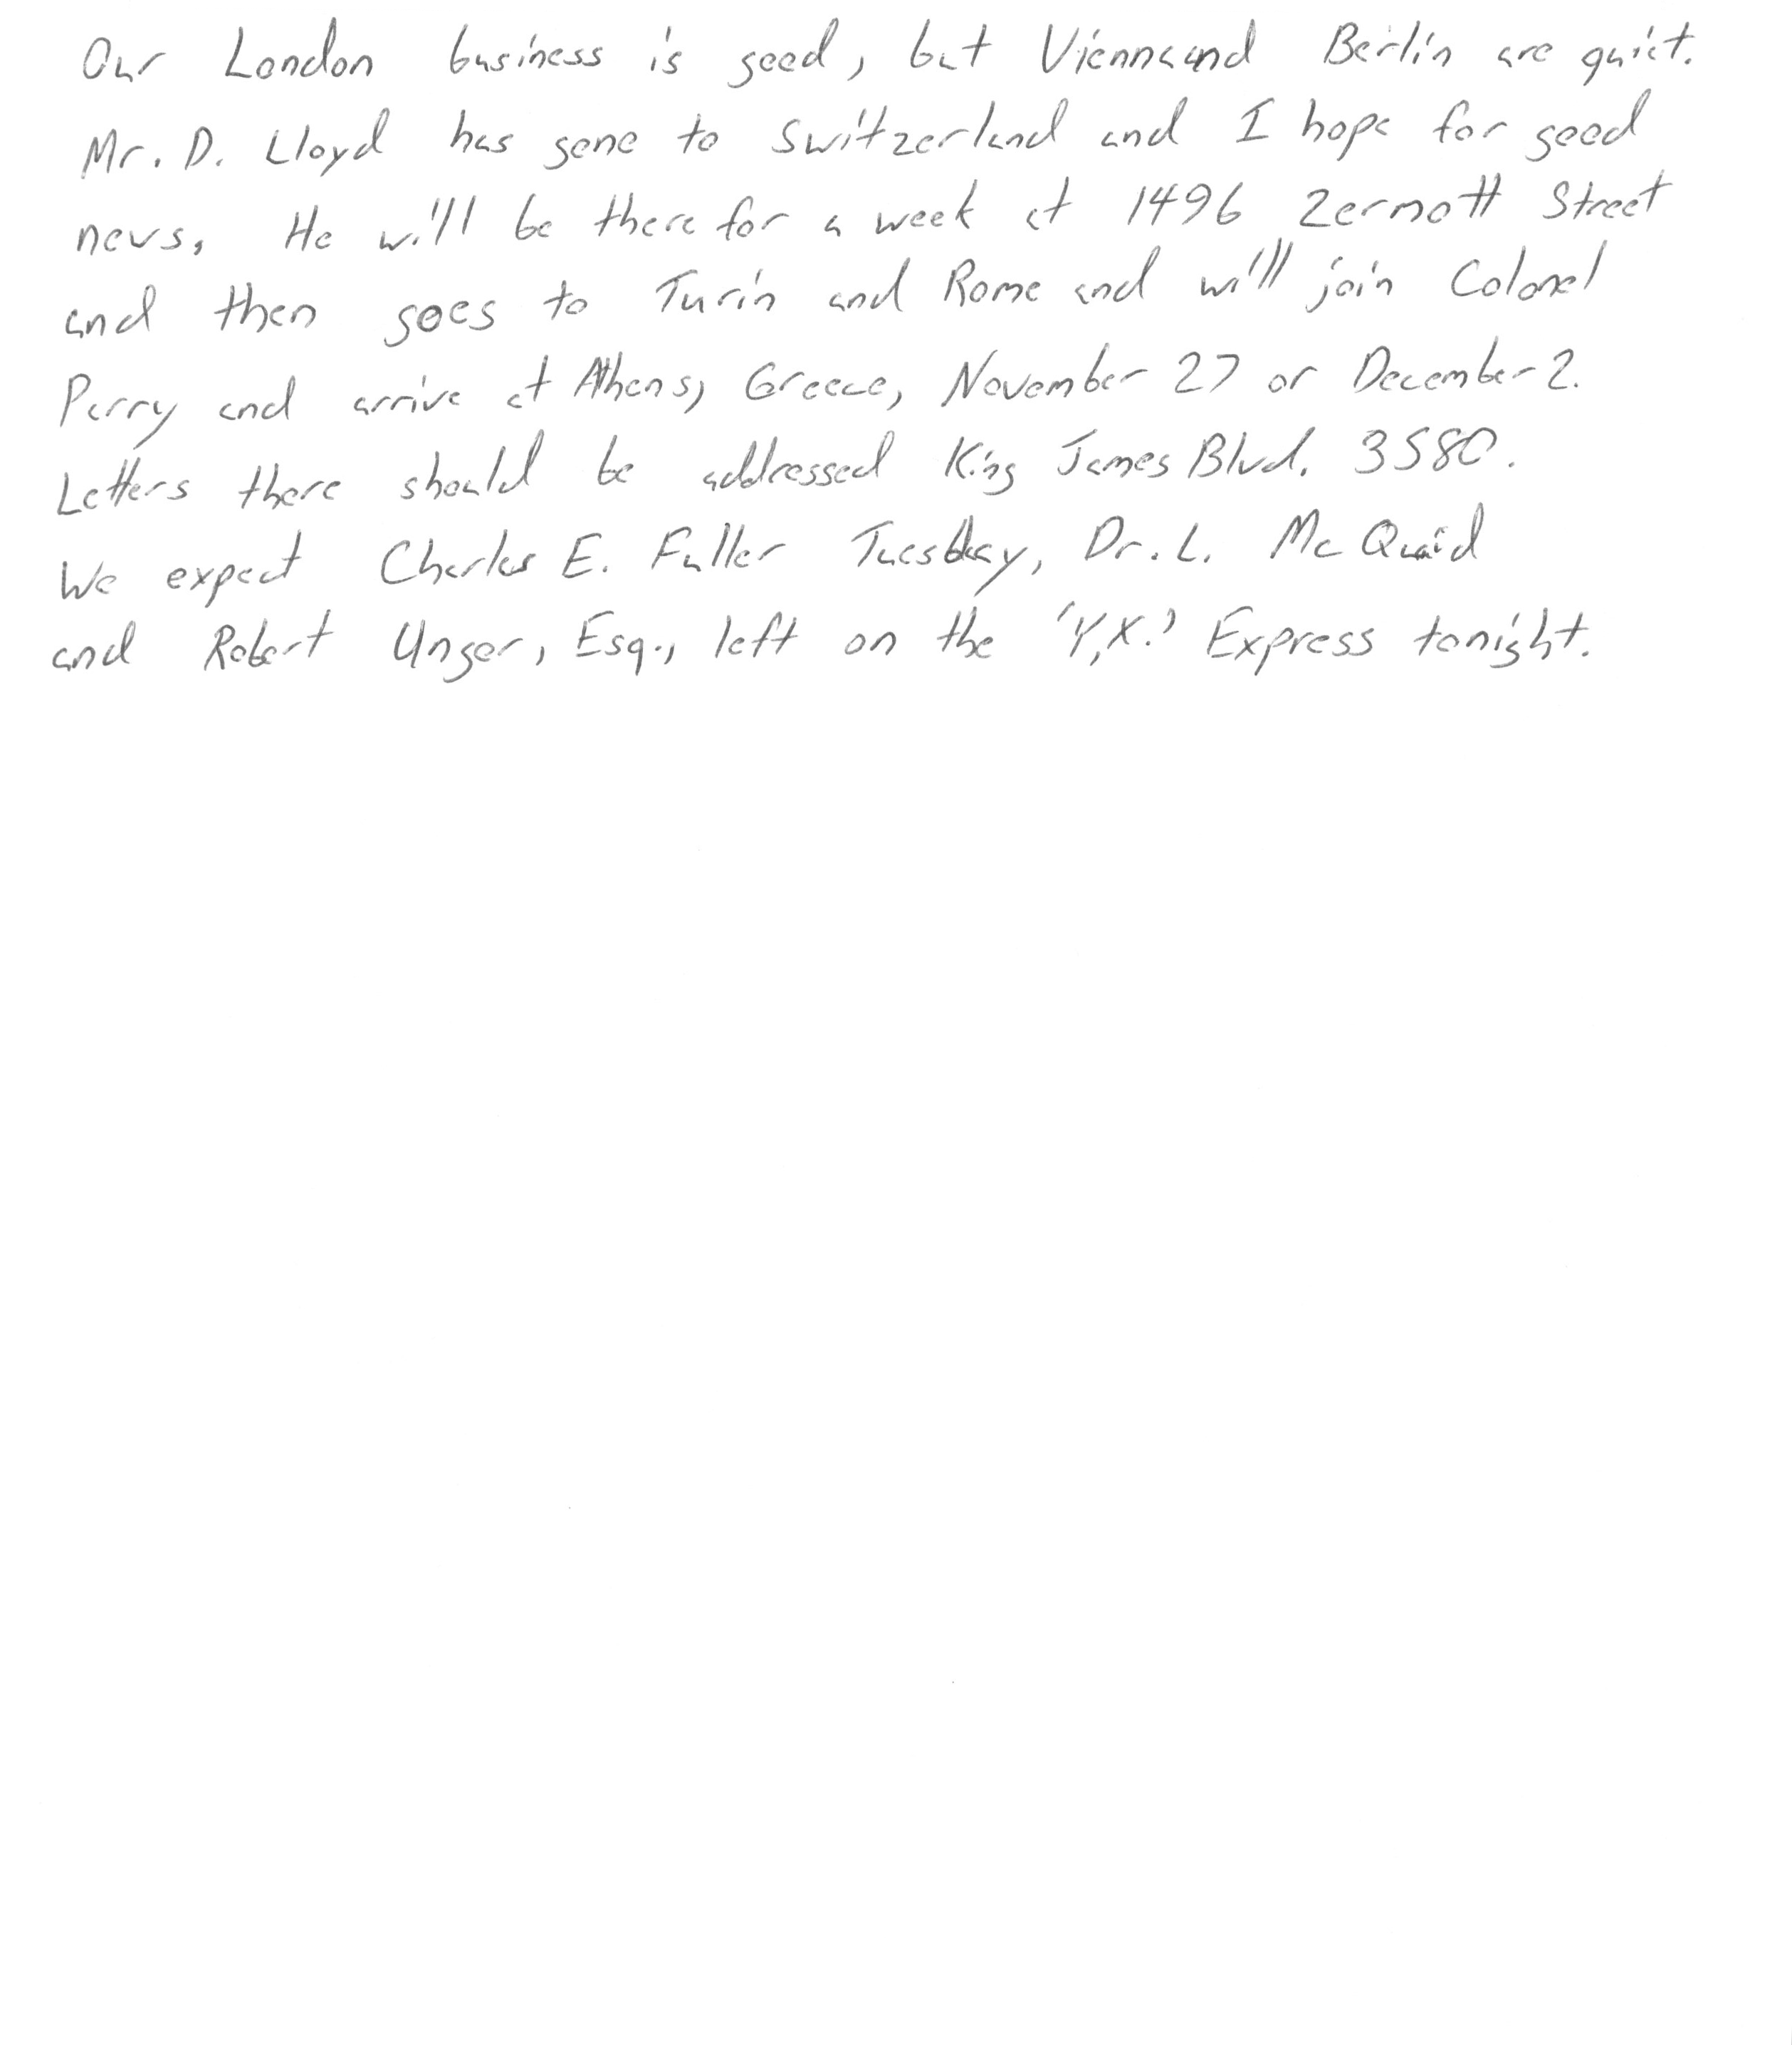 Our London business is good, but Vienna and Berlin are quiet.
Mr. D. Lloyd has gone to Switzerland and I hope for good
news. He will be there for a week at 1496 Zermott Street
and then goes to Turin and Rome and will join Colonel
Parry and arrive at Athens, Greece, November 27 or December 2.
Letters there should be addressed King James Blvd. 3580.
We expect Charles E. Fuller Tuesday, Dr. L. McQuaid
and Robert Unger, Esq., left on the 'Y.X.' Express tonight.